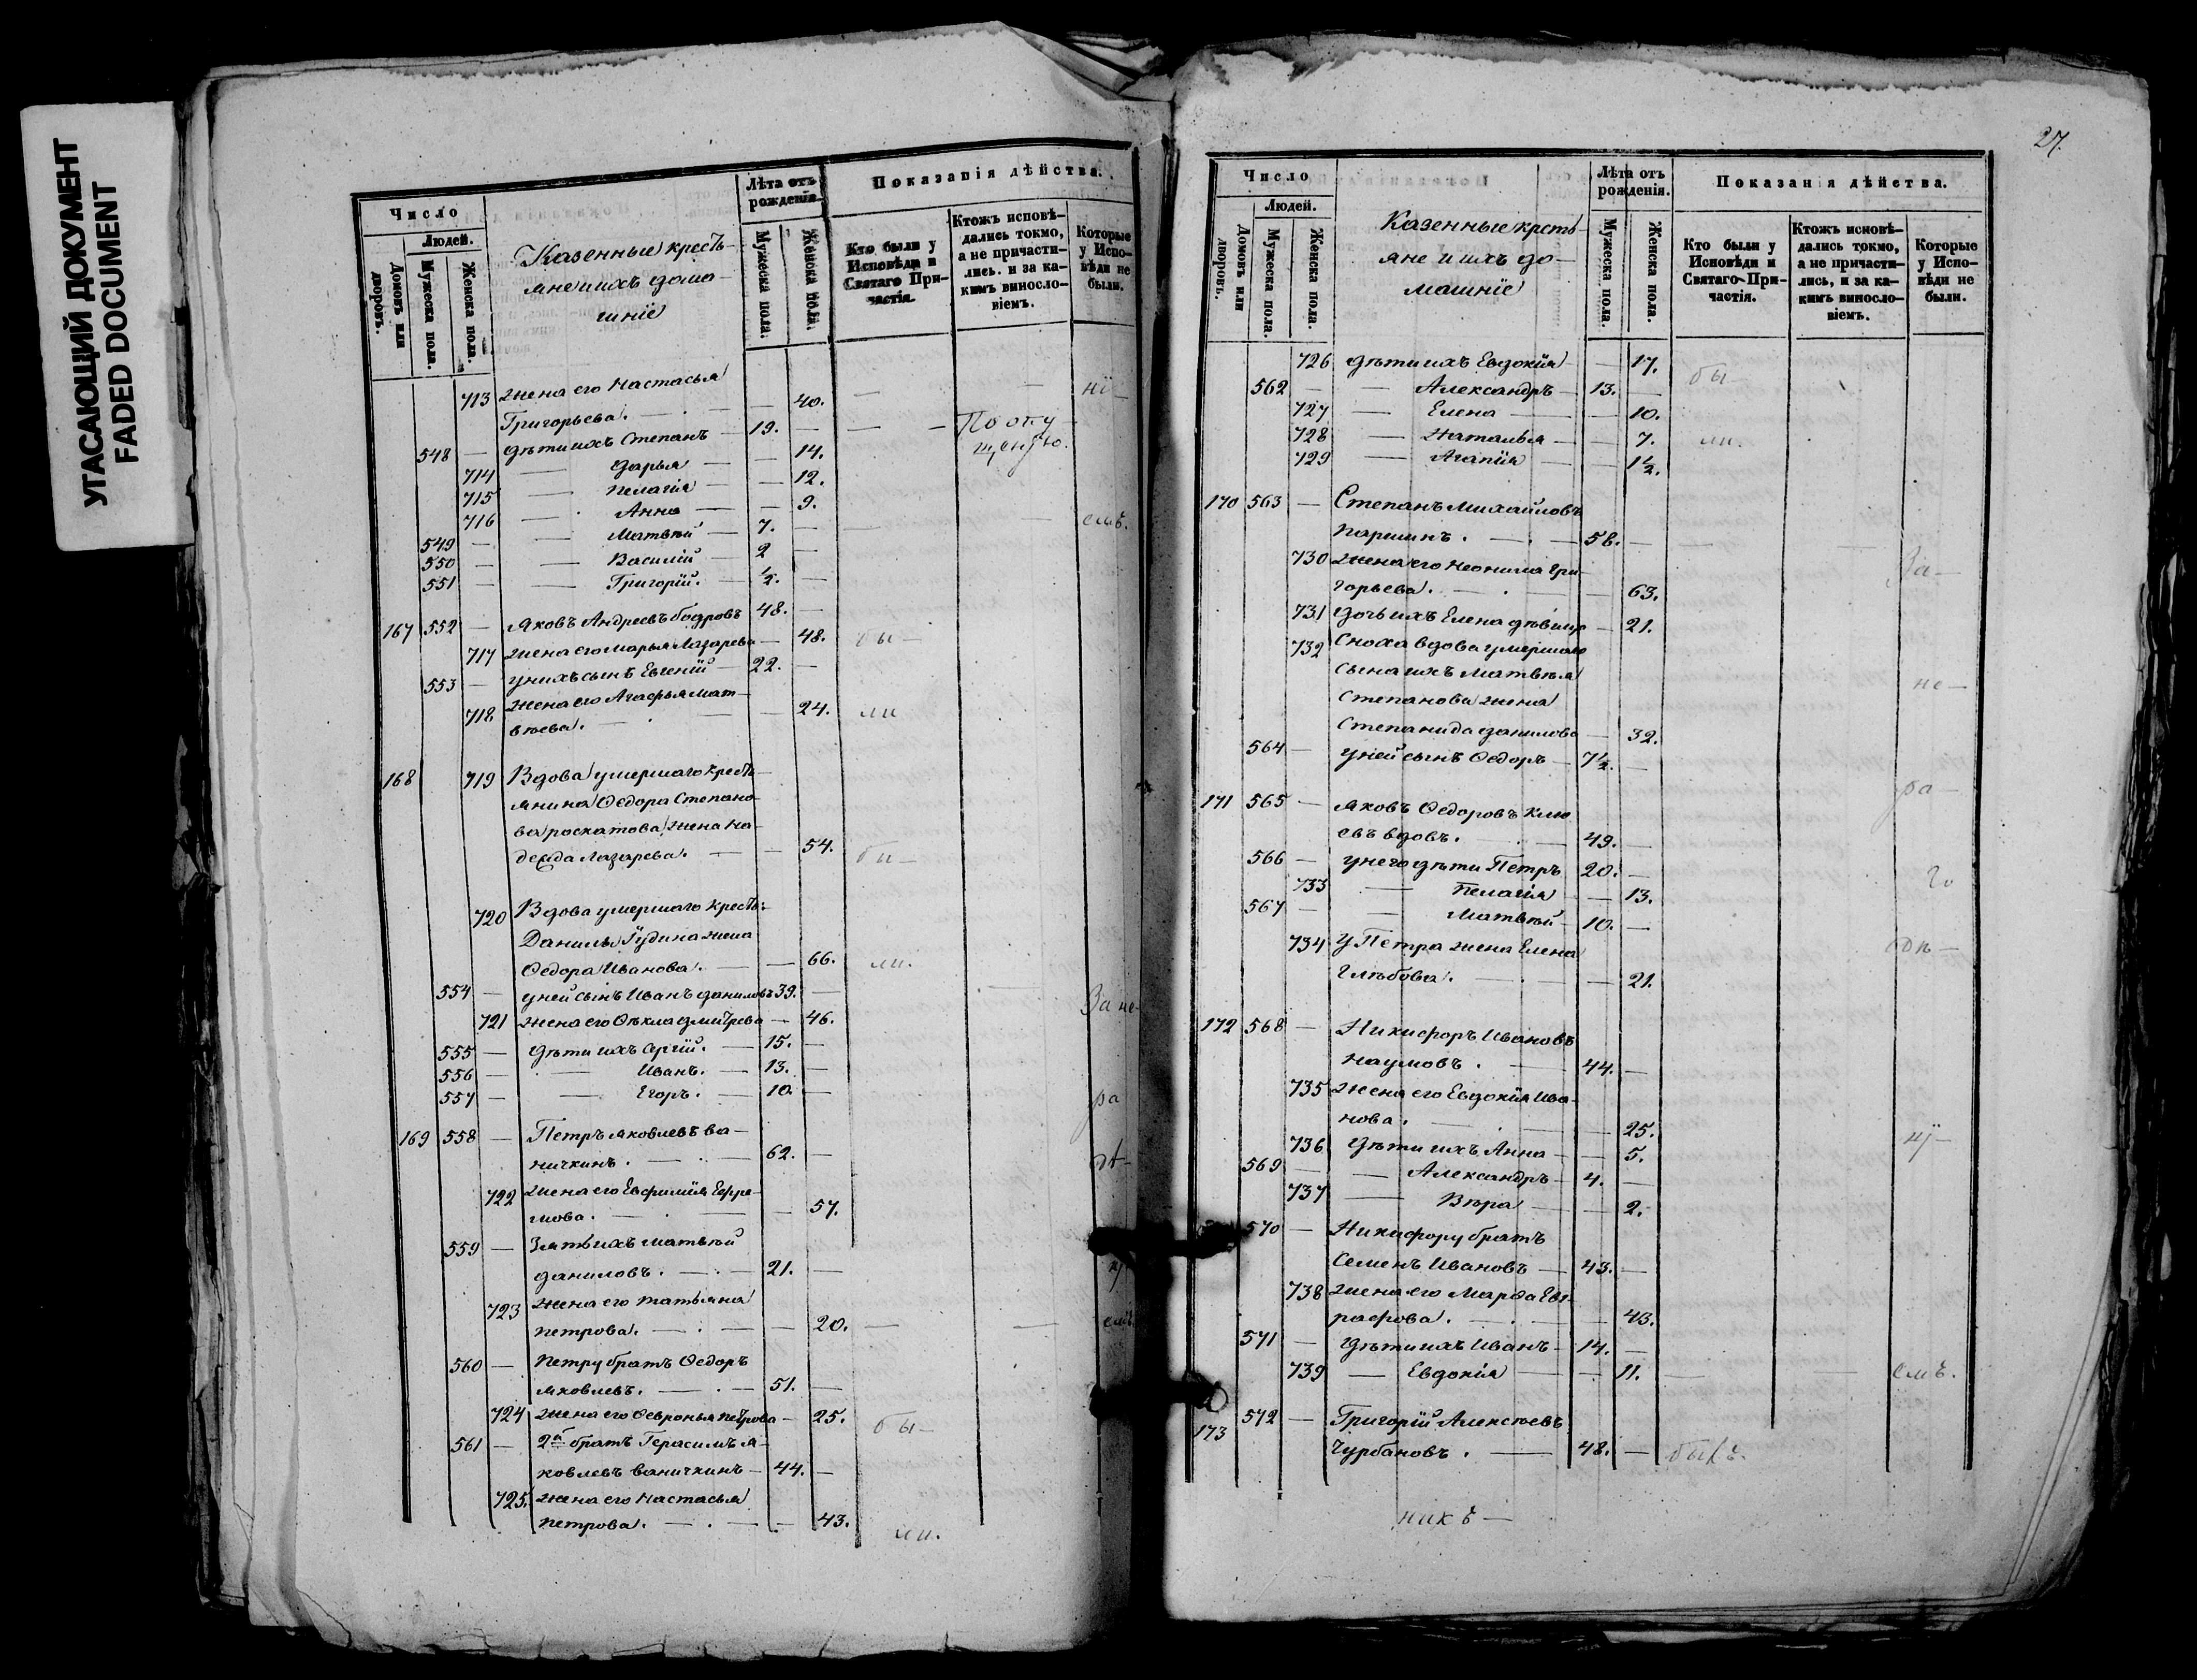 УГАСАЮЩИЙ ДОКУМЕНТ
FADED DOCUMENT
Число
Людей.
Домовъ или дворовъ.
Мужеска пола.
Женска пола.
Казенные кресть-
яне и ихъ дома-
шніе
Лѣта отъ рожденія
Мужеска пола.
Женска пола.
Показанія дѣйства.
Кто были у Исповѣди и Святаго Причастія.
Ктожъ исповѣ-
дались токмо,
а не причасти-
лись. и за ка-
кимъ винносло-
віемъ.
Которые
у Испо-
вѣди не
были.
713 жена его Настасья
Григорьева. — 40.
548 — дѣти ихъ Степанъ — 19. — По опу
714 — Дарья — 14. щенію.
715 — Пелагія — 12.
716 — Анна — 9.
549 — Матвѣй — 7. —
550 — Василій — 2 —
551 — Григорій. — ½. —
167 552 — Яковъ Андреевъ бодровъ 48. —
717 жена его Марья Лазарева — 48. бы —
553 — у нихъ сынъ Евгеній — 22. —
718 жена его Агафья Мат-
вѣева. — 24. ли
168 719 Вдова умершаго кресть-
янина Ѳедора Степано-
ва роскатова жена На-
дежда Лазарева. — 54. бы —
720 Вдова умершаго кресть:
Данилы Гудина жена
Ѳедора Иванова. — 66. ли.
554 — у ней сынъ Иванъ даниловъ 39. —
721 жена его Ѳекла дмитрева — 46. За не-
555 — дѣти ихъ Сергій. — 15. —
556 — Иванъ. — 13. —
557 — Егоръ. — 10. — ра
169 558 — Петръ яковлевъ ва-
ничкинъ. — 62. —
722 жена его Евфимія Ефре-
мова. — 57.
559 — Зять ихъ матвѣй
даниловъ. — 21. —
723 жена его татьяна
петрова. — 20. — емъ.
560 — Петру братъ Ѳедоръ
яковлевъ. — 51. —
724 жена его Ѳевронья петрова — 25. бы —
561 — 2й братъ Герасимъ я-
ковлевъ ваничкинъ — 44. —
725. жена его Настасья
петрова. — 43. ли.
27.
Число
Людей.
Домовъ или дворовъ.
Мужеска пола.
Женска пола.
Казенные кресть-
яне и ихъ до-
машніе
Лѣта отъ рожденія.
Мужеска пола.
Женска пола.
Показанія дѣйства.
Кто были у Исповѣди и Святаго Причастія.
Ктожъ исповѣ-
дались токмо,
а не причасти-
лись, и за ка-
кимъ винносло-
віемъ.
Которые
у Испо-
вѣди не
были.
726 дѣти ихъ Евдокія — 17. бы
562 — Александръ — 13. —
727 — Елена — 10.
728 — Наталья — 7. ли.
729 — Агапія — 1½.
170 563 — Степанъ Михайловъ
Паршинъ. — 58. —
730 жена его Неонила Гри-
горьева. — 63. За-
731 дочь ихъ Елена дѣвица — 21.
732 Сноха вдова умершаго
сына ихъ матвѣя
Степанова жена не —
Степанида данилова — 32.
564 — у ней сынъ Ѳедоръ — 7½. —
171 565 — яковъ Ѳедоровъ Клю ра —
евъ вдовъ. — 49. —
566 — у него дѣти Петръ 20. —
733 — Пелагія — 13.
567 — Матвѣй — 10. —
734 У Петра жена Елена
Глѣбова. — 21.
172 568 — Никифоръ Ивановъ
Наумовъ. — 44. —
735 жена его Евдокія Ива-
нова. — 25.
736 дѣти ихъ Анна — 5.
569 — Александръ — 4. —
737 — Вѣра — 2.
570 — Никифору братъ
Семенъ Ивановъ — 43. —
738 жена его Марѳа Евг-
рафова. — 43.
571 — дѣти ихъ Иванъ — 14. —
739 — Евдокія — 11. — емъ.
173 572 — Григорій Алексѣевъ
Чурбановъ. — 48. — былъ.
никъ —